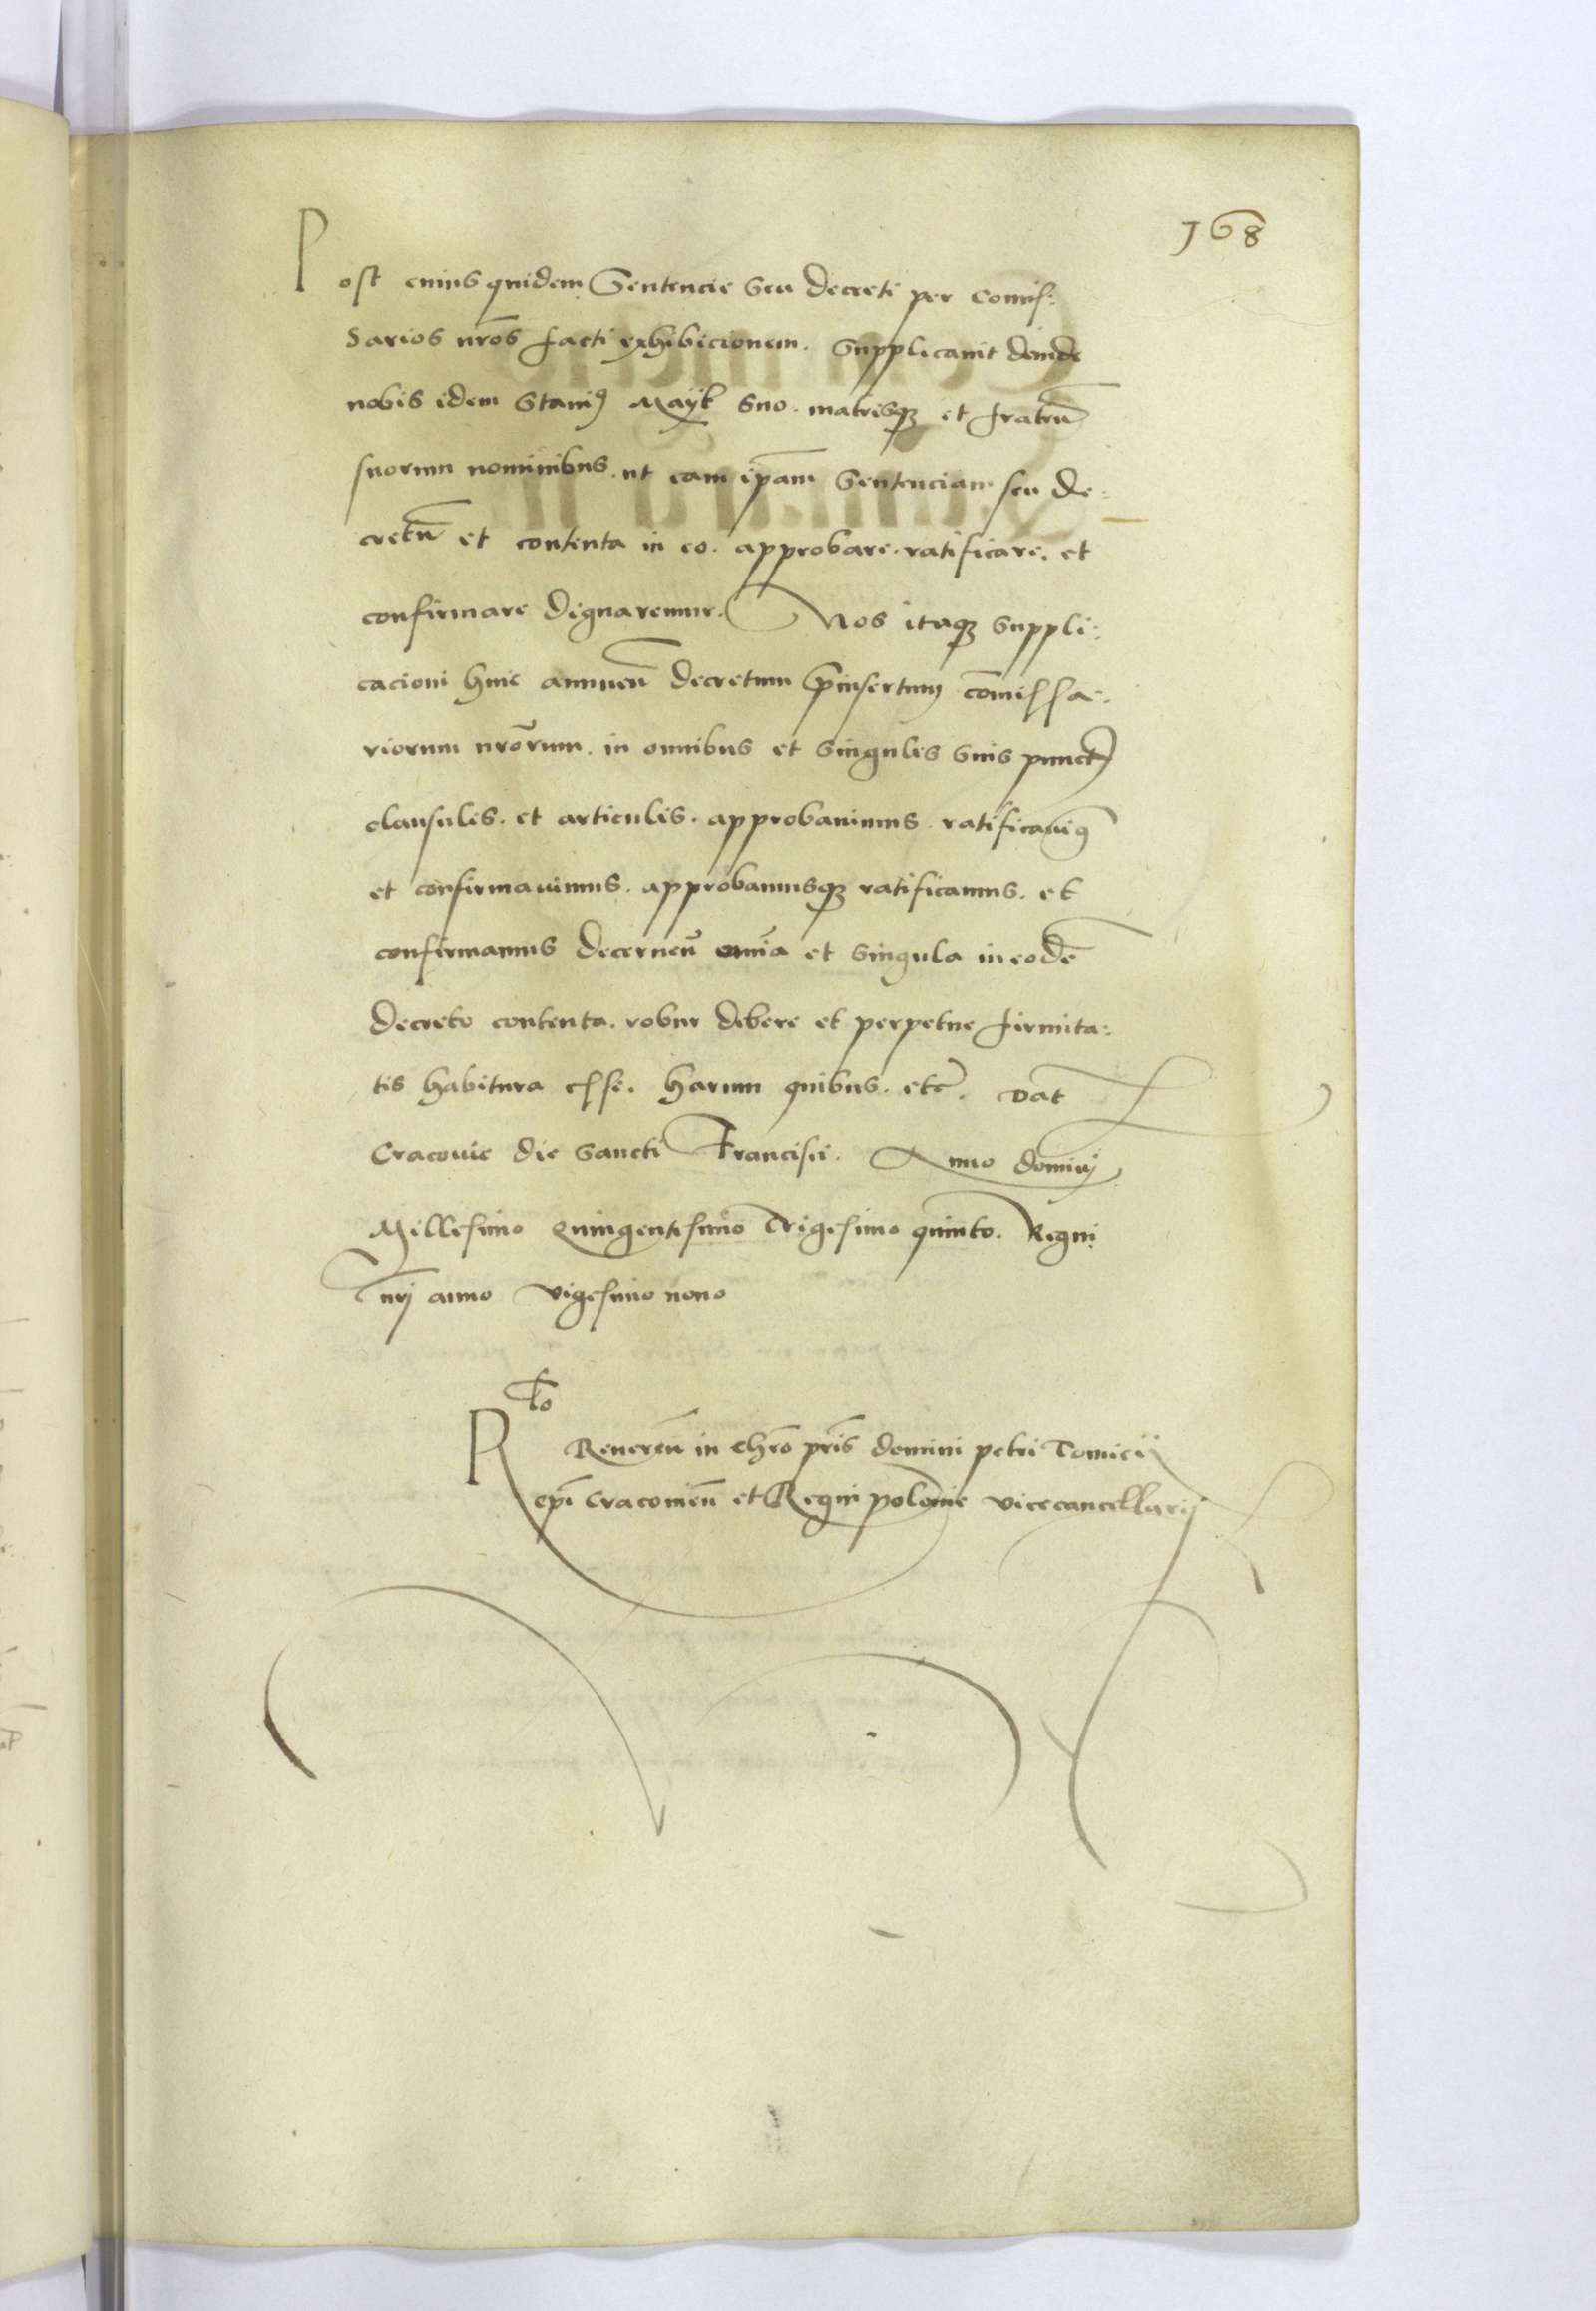 168
Post cuius quidem Sentencie seu decreti per Comis:
sarios nr̃os facti exhibicionem. supplicauit deinde
nobis idem Staniꝰ Mayk suo. matrisqꝫ et fratrũ
suorum nominibus. ut eam ip̃am sentenciam seu de:
cretũ et contenta in eo. approbare. ratificare. et
confirmare dignaremur. Nos itaqꝫ suppli:
cacioni huic annueñ decretum p̃insertum com̃issa:
riorum nr̃orum. in omnibus et singulis suis punct
clausulis. et articulis. approbauimus. ratificauimꝰ
et confirmauimus. approbamusqꝫ ratificamus. et
confirmamus decerneñ om̃ia et singula in eodẽ
decreto contenta. robur debere et perpetue firmita:
tis habitura esse. harum quibus. etc̃. Dat
Cracouie die sancti Francisci. Anno dominj
Millesimo Quingentesimo Trigesimo quinto. Regni
nr̃j anno vigesimo nono
Rto
Reuereñ in chr̃o pr̃is domini petri Tomicij
ep̃i Cracouieñ et Regni polonie vicecancellarij